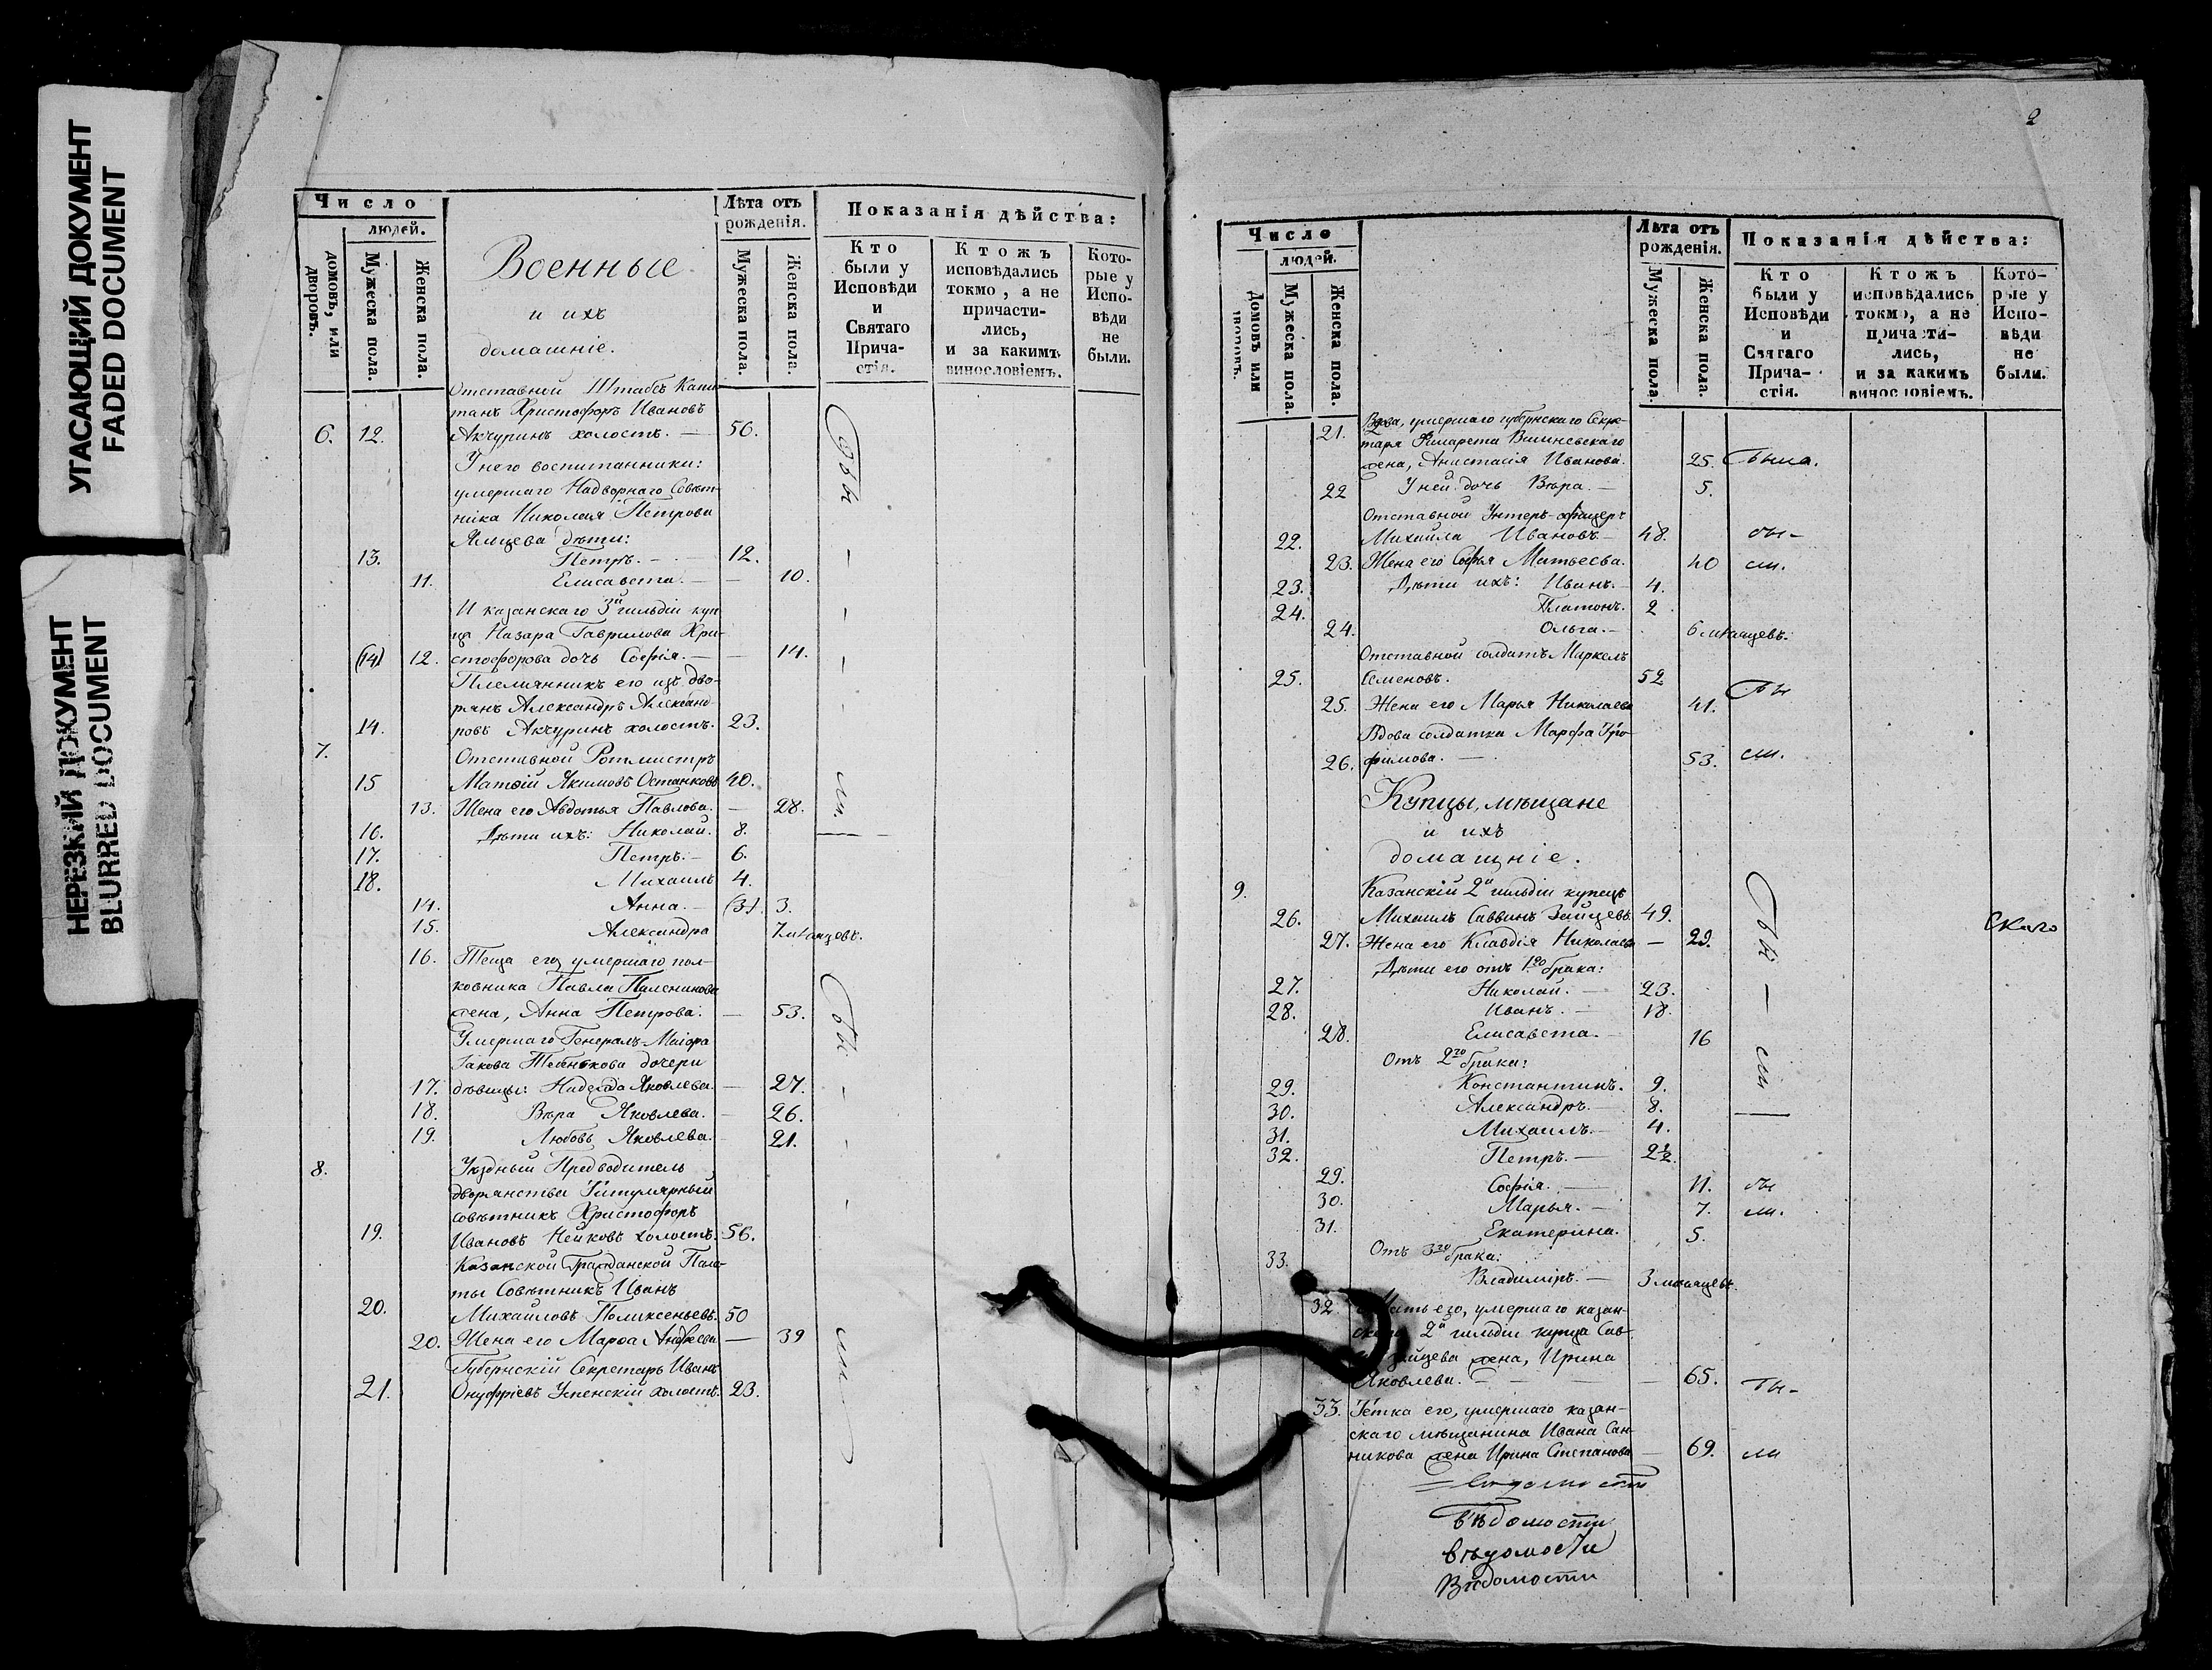 УГАСАЮЩИЙ ДОКУМЕНТ
FADED DOCUMENT
НЕРЕЗКИЙ ДОКУМЕНТ
BLURRED DOCUMENT
Число
людей.
домовъ, или дворовъ.
Мужеска пола.
Женска пола.
Военные
и ихъ
домашніе.
Лѣта отъ
рожденія.
Мужеска пола.
Женска пола.
Показанія дѣйства:
Кто
были у
Исповѣди
и
Святаго
Прича-
стія.
Ктожъ
исповѣдались
токмо, а не
причасти-
лись,
и за какимъ
винословіемъ.
Кото-
рые у
Испо-
вѣди
не
были.
Отставной Штабсъ Капи-
танъ Христофоръ Ивановъ
6. 12. Акчуринъ холостъ. — 56.
У него воспитанники:
умершаго Надворнаго Совѣт-
ника Николая Петрова
дѣти:
13. Петръ. — 12.
11. Елисавета. — — 10.
И казанскаго 3й гильдіи куп-
ца Назара Гаврилова Хри-
(14) 12. стофорова дочь Софія. — — 14.
Племянникъ его изъ дво-
рянъ Александръ Александ-
14. ровъ Акчуринъ холостъ. 23.
7. Отставной Ротмистръ
15 Матѳій Якимовъ Останковъ 40.
13. Жена его Авдотья Павлова. — 28.
16. Дѣти ихъ: Николай. 8.
17. Петръ. — 6.
18. Михаилъ 4.
14. Анна. — (3) 3.
15. Александра 7 мѣсяцевъ.
16. Теща его, умершаго пол-
ковника Павла
жена, Анна Петрова. — 53.
Умершаго Генералъ-Маіора
Іакова дочери
17. дѣвицы: Надежда Яковлева. — 27.
18. Вѣра Яковлева. — 26.
19. Любовь Яковлева. 21.
8. Уѣздный Предводитель
дворянства Титулярный
совѣтникъ Христофоръ
19. Ивановъ Нейковъ холостъ. 56.
Казанской Гражданской Пала-
ты Совѣтникъ Иванъ
20. Михайловъ Поликсеньевъ. 50
20. Жена его Марѳа Андреева — 39
Губернскій Секретарь Иванъ
21. Онуфріевъ Успенскій холостъ. 23.
бы
—
ли.
2
Число
людей.
Домовъ или
Мужеска пола.
Женска пола.
Лѣта отъ
рожденія.
Мужеска пола.
Женска пола.
Показанія дѣйства:
Кто
были у
Исповѣди
и
Святаго
Прича-
стія.
Ктожъ
исповѣдались
токмо, а не
причасти-
лись,
и за какимъ
винословіемъ.
Кото-
рые у
Испо-
вѣди
не
были.
Вдова, умершаго губернскаго Секре-
21. таря
жена, Анастасія Иванова. 25. была.
22 У ней дочь Вѣра. — 5.
Отставной Унтеръ-офицеръ
22. Михайла Ивановъ — 48. бы-
23. Жена его Софья Матвеева. 40 ли.
23. Дѣти ихъ: Иванъ. — 4.
24. Платонъ. 2
24. Ольга. — 6 мѣсяцевъ.
Отставной солдатъ Маркелъ
25. Семеновъ. 52
бы
25. Жена его Марья Николаева 41.
Вдова солдатка Марфа Тро-
26. фимова. — 53. ли.
Купцы, мѣщане
и ихъ
домашніе.
9. Казанскій 2й гильдіи купецъ
26. Михаилъ Саввинъ Зайцевъ 49.
27. Жена его Клавдія Николаева — 29.
Скаго
Дѣти его отъ 1го брака:
27. Николай. — 23.
28. Иванъ. — 18.
28. Елисавета. — 16
Отъ 2го брака:
29. Константинъ. 9.
30. Александръ. — 8.
31. Михаилъ. — 4.
32. Петръ. — 2½.
бы — ли
29. Софія. — 11. бы
30. Марья. — 7. ли.
31. Екатерина. 5.
Отъ 3го брака:
33. Владиміръ. — 3 мѣсяцевъ.
32 Мать его, умершаго казан-
скаго 2й гильдіи купца Сав-
Зайцева жена, Ирина
Яковлева. — — — — 65. бы-
33. Тетка его, умершаго казан-
скаго мѣщанина Ивана Сан-
никова жена Ирина Степанова — 69. ли
вѣдомости
вѣдомости
Вѣдомости